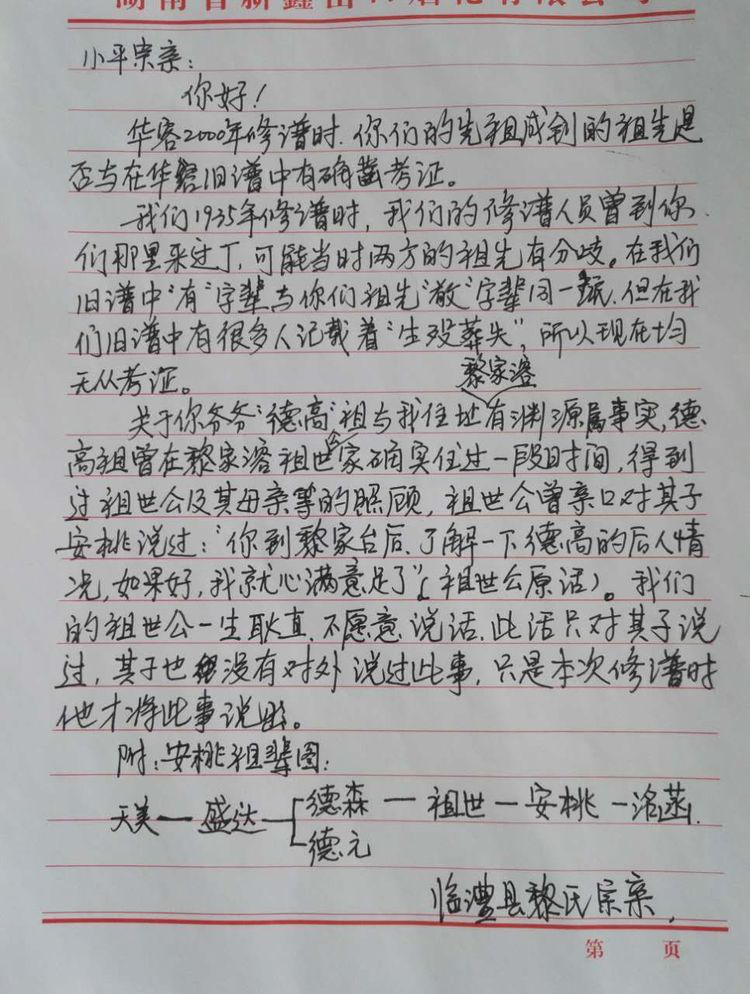 小平宗亲：
你好！
华容2000年修谱时.你们的先祖成钊的祖先是
否与在华容旧谱中有确凿考证。
我们1935年修谱时，我们的修谱人员曾到你
们那里采过丁，可能当时两方的祖先有分歧。在我们
旧谱中"有"字辈与你们祖先"教"字辈同一辈，但在我
们旧谱中有很多人记载着"生殁葬失"，所以现在均
无从考证。
黎家溶
关于你爷爷"德高"祖与我住址有渊源属事实，德
高祖曾在黎家溶祖世家确实住过一段时间，得到
过祖世公及其母亲等的照顾，祖世公曾亲口对其子
安桃说过："你到黎家台后、了解一下德高的后人情
况，如果好，我就心满意足了"（祖世公原话）。我们
的祖世公一生耿直、不愿意说话.此话只对其子说
过，其子也没有对外说过此事，只是本次修谱时
他才将此事说出。
附：安桃祖辈图：
天美—盛达—德森—祖世—安桃—洺
德元
临澧县黎氏宗亲
第 页